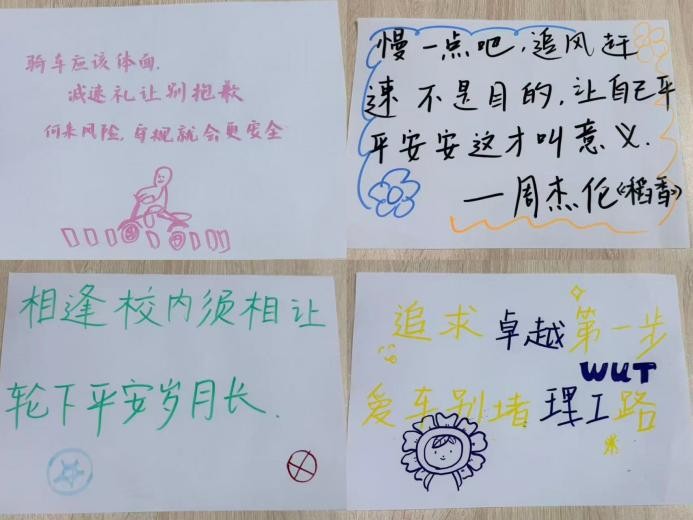 骑车应该体面.
减速礼让别抱歉
何来风险,守规就会更安全
慢一点吧,追风赶
速 不是目的,让自己平
平安安这才叫意义.
—周杰伦《稻香》
相逢校内须相让
轮下平安岁月长.
追求卓越第一步
WUT
爱车别堵理工路